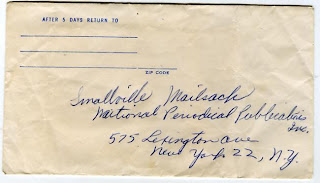 AFTER 5 DAYS RETURN TO
ZIP CODE
Smallville Mailsack
National Periodical Publications
Inc.
575 Lexington Ave
New York 22, N.Y.